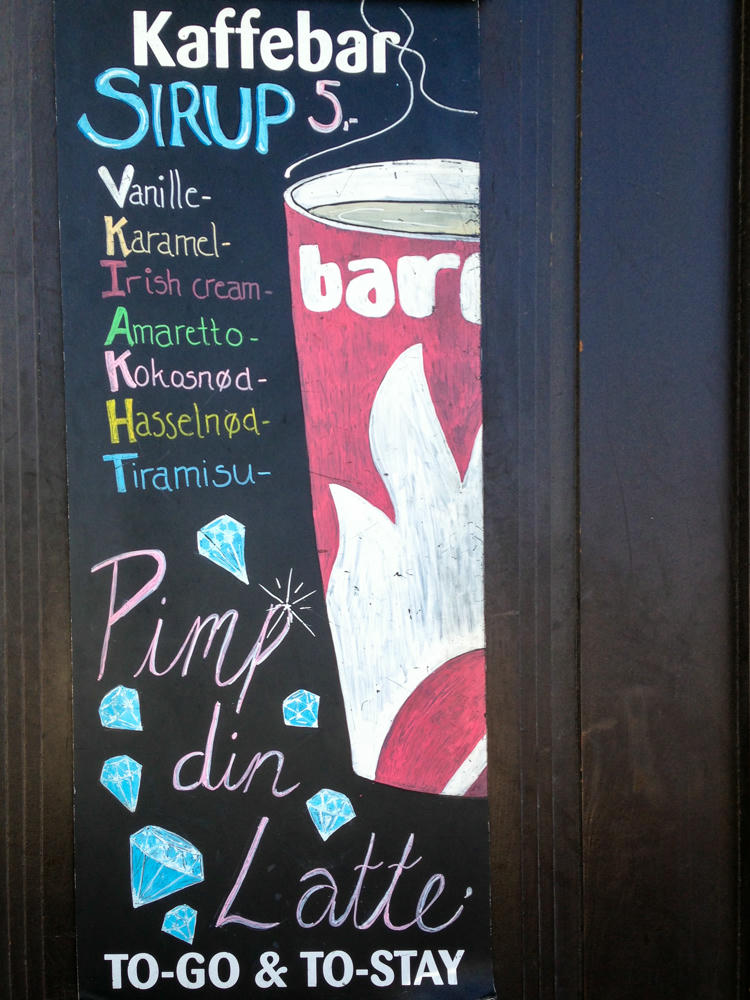 Kaffebar
SIRUP 5,-
Vanille-
Karamel-
Irish cream-
Amaretto-
Kokosnød-
Hasselnød-
Tiramisu-
bar
Pimp
din
Latte
TO-GO & TO-STAY